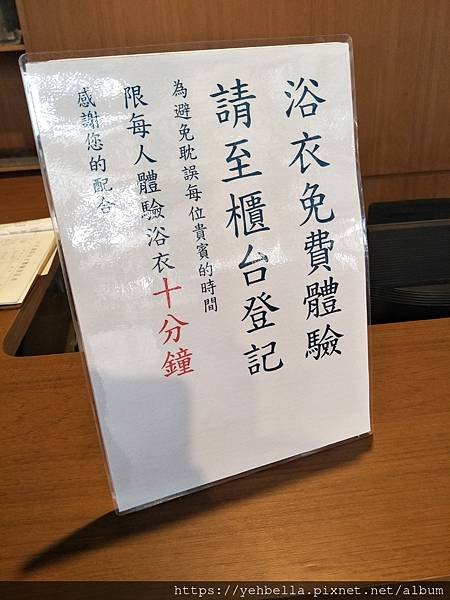 浴衣免費體驗
請至櫃台登記
為避免耽誤每位貴賓的時間
限每人體驗浴衣十分鐘
感謝您的配合
https://yehbella.pixnet.net/album